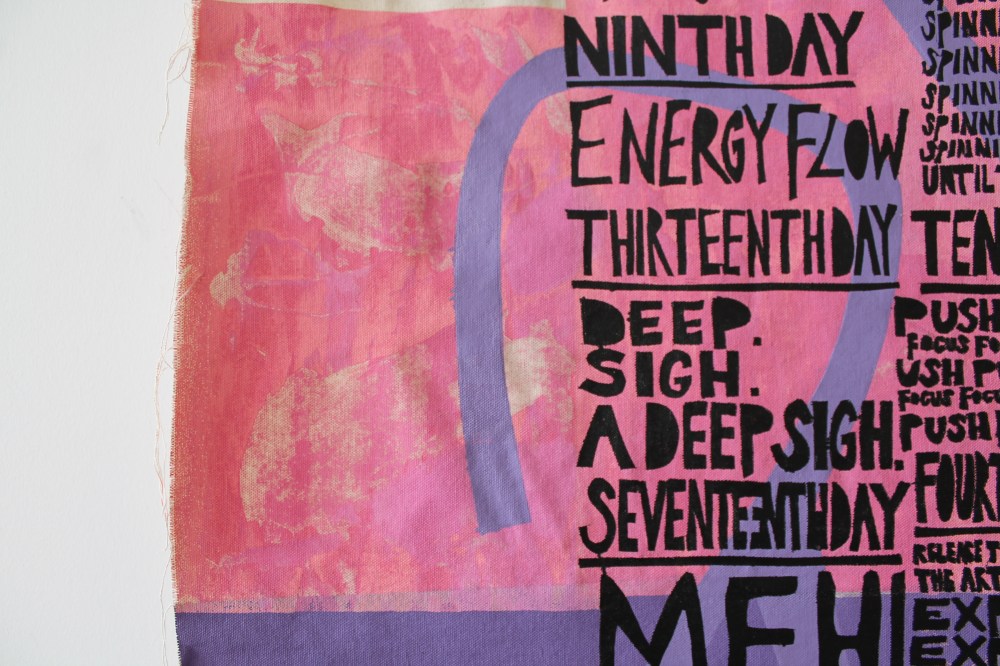 NINTH DAY
ENERGY FLOW
THIRTEENTH DAY
DEEP.
SIGH.
A DEEP SIGH.
SEVENTEENTH DAY
MEH
SPINN
SPINN
SPINN
SPINN
SPINNI
UNTIL
TEN
PUSH
FOCUS FO
USH P
FOCUS FOC
PUSH
FOURT
RELEASE T
THE ART
EXP
EXP